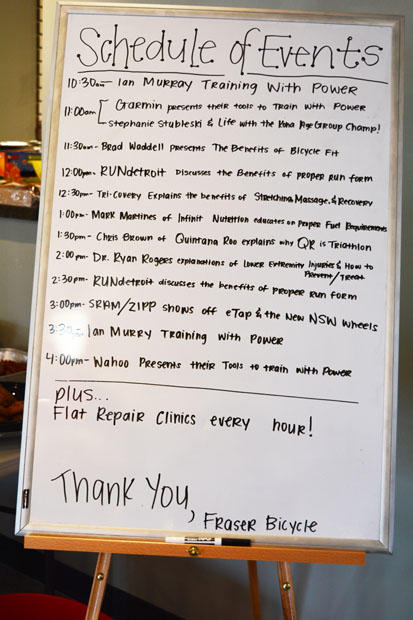 Schedule of Events
10:30am- Ian Murray Training With Power
11:00am Garmin presents their tools to Train with Power
Stephanie Stubleski & Life with the Kona Age Group Champ!
11:30am- Brad Waddell Presents The Benefits of Bicycle Fit
12:00pm- RUNdetroit Discusses the Benefits of proper run form
12:30pm- Tri-Covery Explains the benefits of Stretching, Massage, & Recovery
1:00pm- Mark Martines of Infinit Nutrition educates on Proper Fuel Requirements
1:30pm- Chris Brown of Quintana Roo explains why QR is Triathlon
2:00pm- Dr. Ryan Rogers explanations of Lower Extremity Injuries & How to
Prevent/Treat
2:30pm- RUNdetroit discusses the benefits of proper run form
3:00pm- SRAM/ZIPP shows off eTap & the New NSW Wheels
3:30pm Ian Murry Training with Power
4:00pm- Wahoo Presents their Tools to train with Power
plus...
Flat Repair Clinics every hour!
Thank You,
Fraser Bicycle